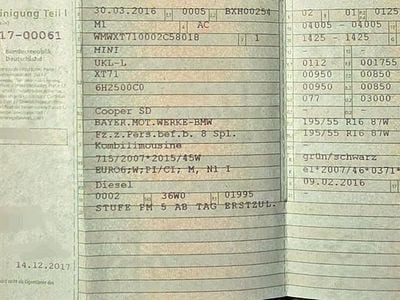 inigung Teil I
17-00061
Bundesrepublik
Deutschland
14.12.2017
30.03.2016 0005 BXH00254
M1 AC
WMWXT710002C58018 1
MINI
UKL-L
XT71
6H2500C0
Cooper SD
BAYER.MOT.WERKE-BMW
Fz.z.Pers.bef.b. 8 Spl.
Kombilimousine
715/2007*2015/45W
EURO6;W;PI/CI; M, N1 I
Diesel
0002 36W0 01995
STUFE PM 5 AB TAG ERSTZUL.
02 01 0125
04005 - 04005 -
1425 - 1425 -
-
0112 001755
00950 00850
00950 00850
077 03000
- -
195/55 R16 87W
195/55 R16 87W
-
grün/schwarz
e1*2007/46*0371*
09.02.2016